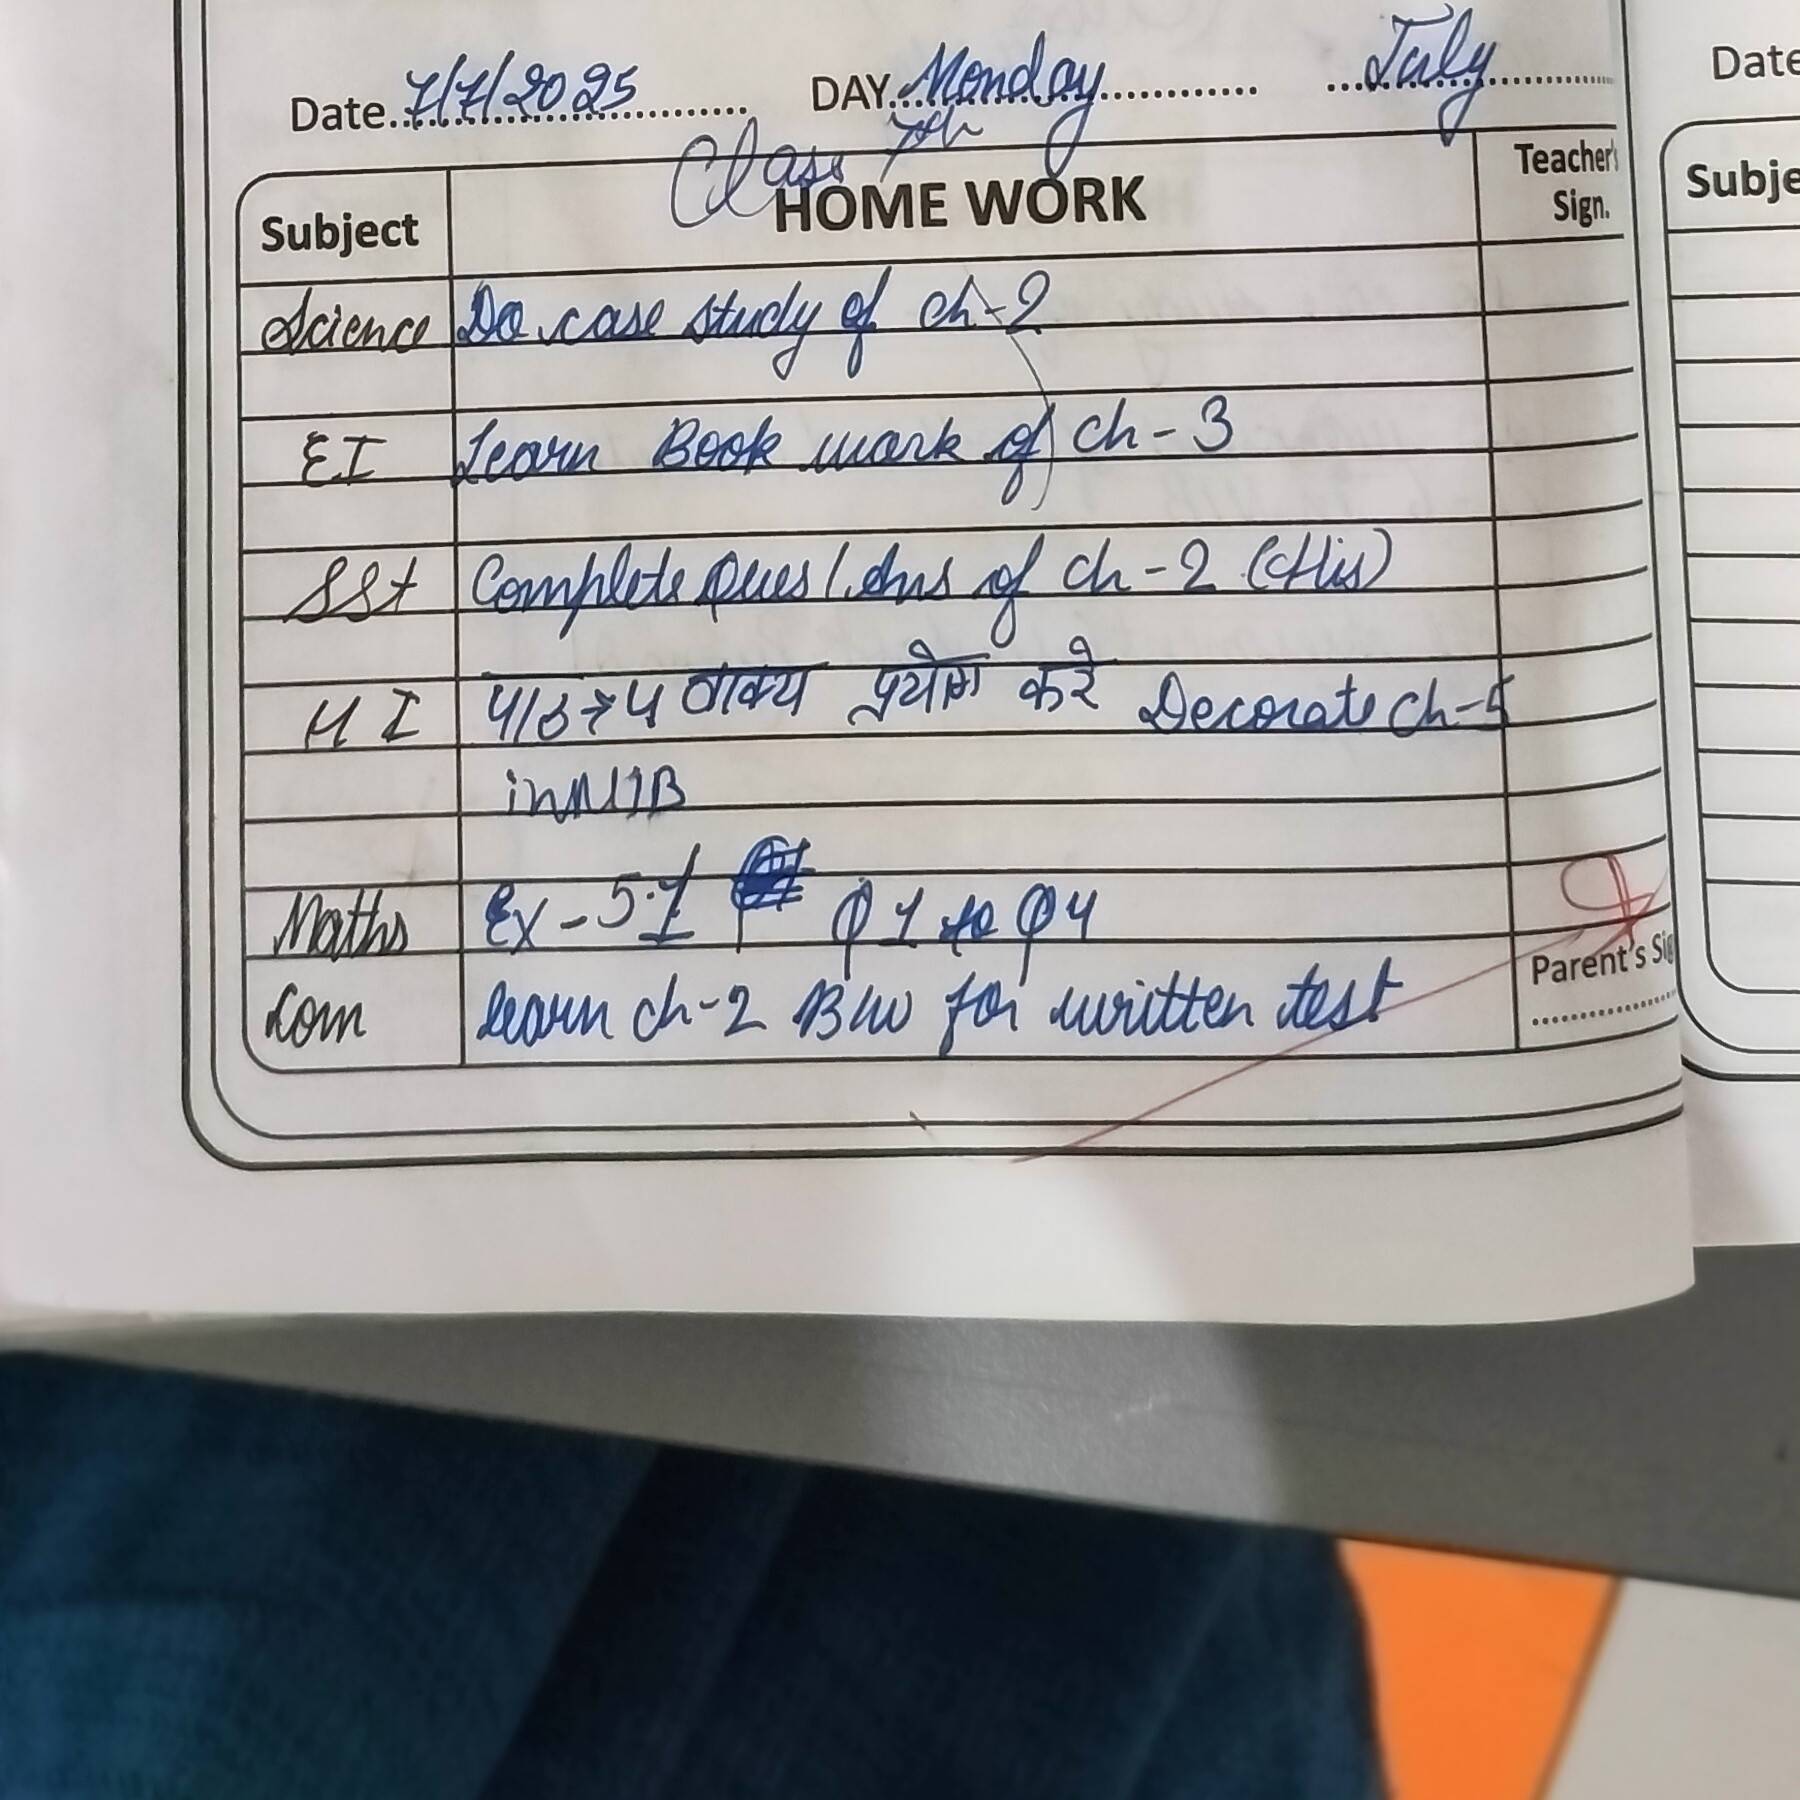 Date 7/7/2025 DAY Monday July
Date
Class 7th
Subject HOME WORK Teacher's Sign.
Subje
Science Do case study of ch-2
EI Learn Book mark of ch-3
SSt Complete Ques/Ans of ch-2 (His)
HI वाक्य प्रयोग करे Decorate ch-5
in
Maths Ex-5.1 Q1 to Q4
Com Learn ch-2 BW for written test
Parent's Si